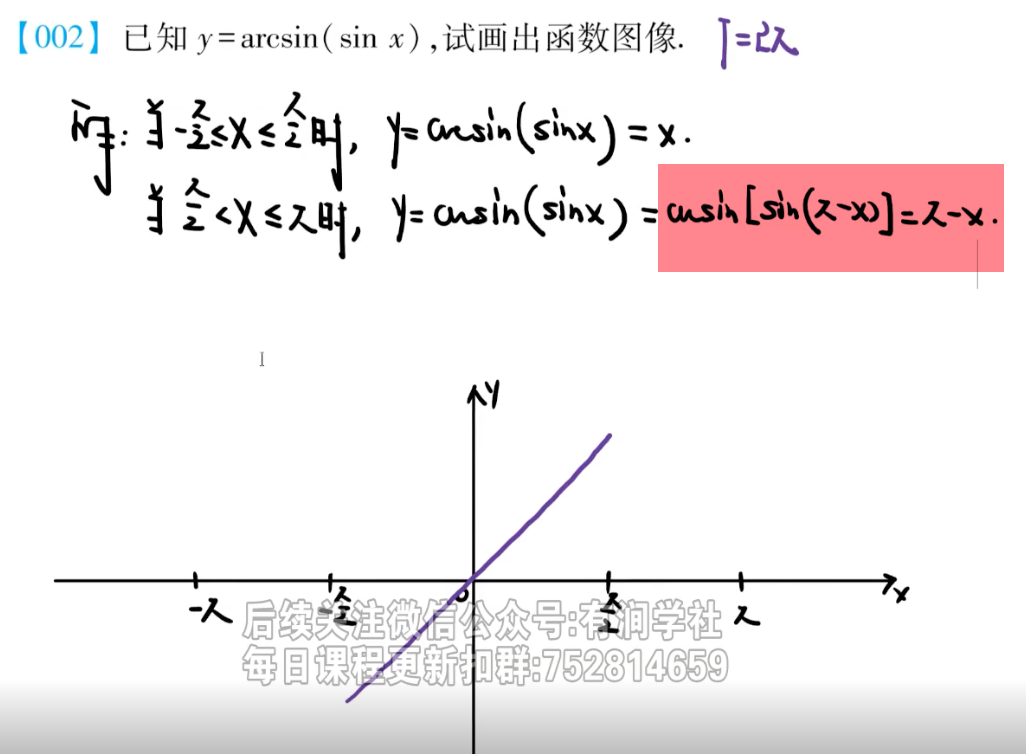 【002】已知 y=arcsin(sin x),试画出函数图像. T=2π
解: 当 -π/2≤x≤π/2时, y=arcsin(sinx)=x.
当 π/2<x≤π时, y=arcsin(sinx)=arcsin[sin(π-x)]=π-x.
y
x
-π -π/2 0 π/2 π
后续关注微信公众号:有润学社
每日课程更新扣群:752814659